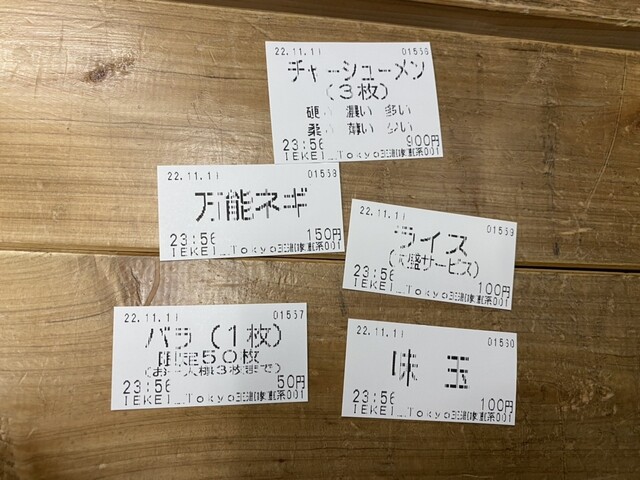 22.11.1
01556
チャーシューメン
(3枚)
硬い 濃い 多い
柔 薄い 少い
23:56 900円
IEKEI_Tokyo 001
22.11.1
万能ネギ
23:56 150円
IEKEI_Tokyo 001
22.11.1
01559
ライス
(大盛サービス)
23:56 100円
IEKEI_Tokyo 001
22.11.1
01557
バラ(1枚)
限定50枚
(お一人様3枚まで)
23:56 50円
IEKEI_Tokyo 001
22.11.1
01560
味玉
23:56 100円
IEKEI_Tokyo 001